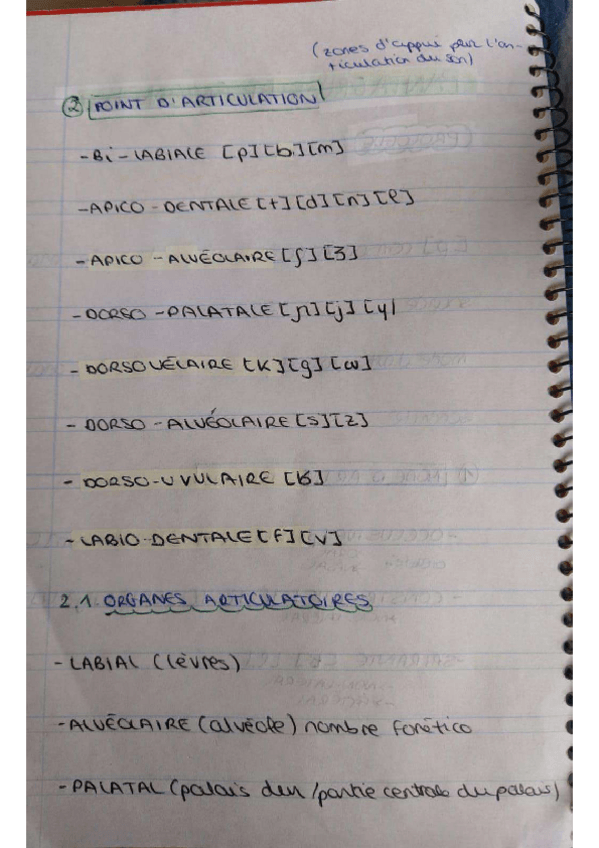 (zones d'appui pour l'ar-
ticulation du son)
② POINT D'ARTICULATION
-Bi-LABIALE [p][b][m]
-APICO-DENTALE [t][d][n][l]
-APICO-ALVÉOLAIRE [ʃ][ʒ]
-DORSO-PALATALE [ɲ][j][ɥ]
-DORSOVÉLAIRE [k][g][w]
-DORSO-ALVÉOLAIRE [s][z]
-DORSO-UVULAIRE [ʁ]
-LABIO-DENTALE [f][v]
2.1. ORGANES ARTICULATOIRES
-LABIAL (lèvres)
-ALVÉOLAIRE (alvéole) nombre fonético
-PALATAL (palais dur/partie centrale du palais)